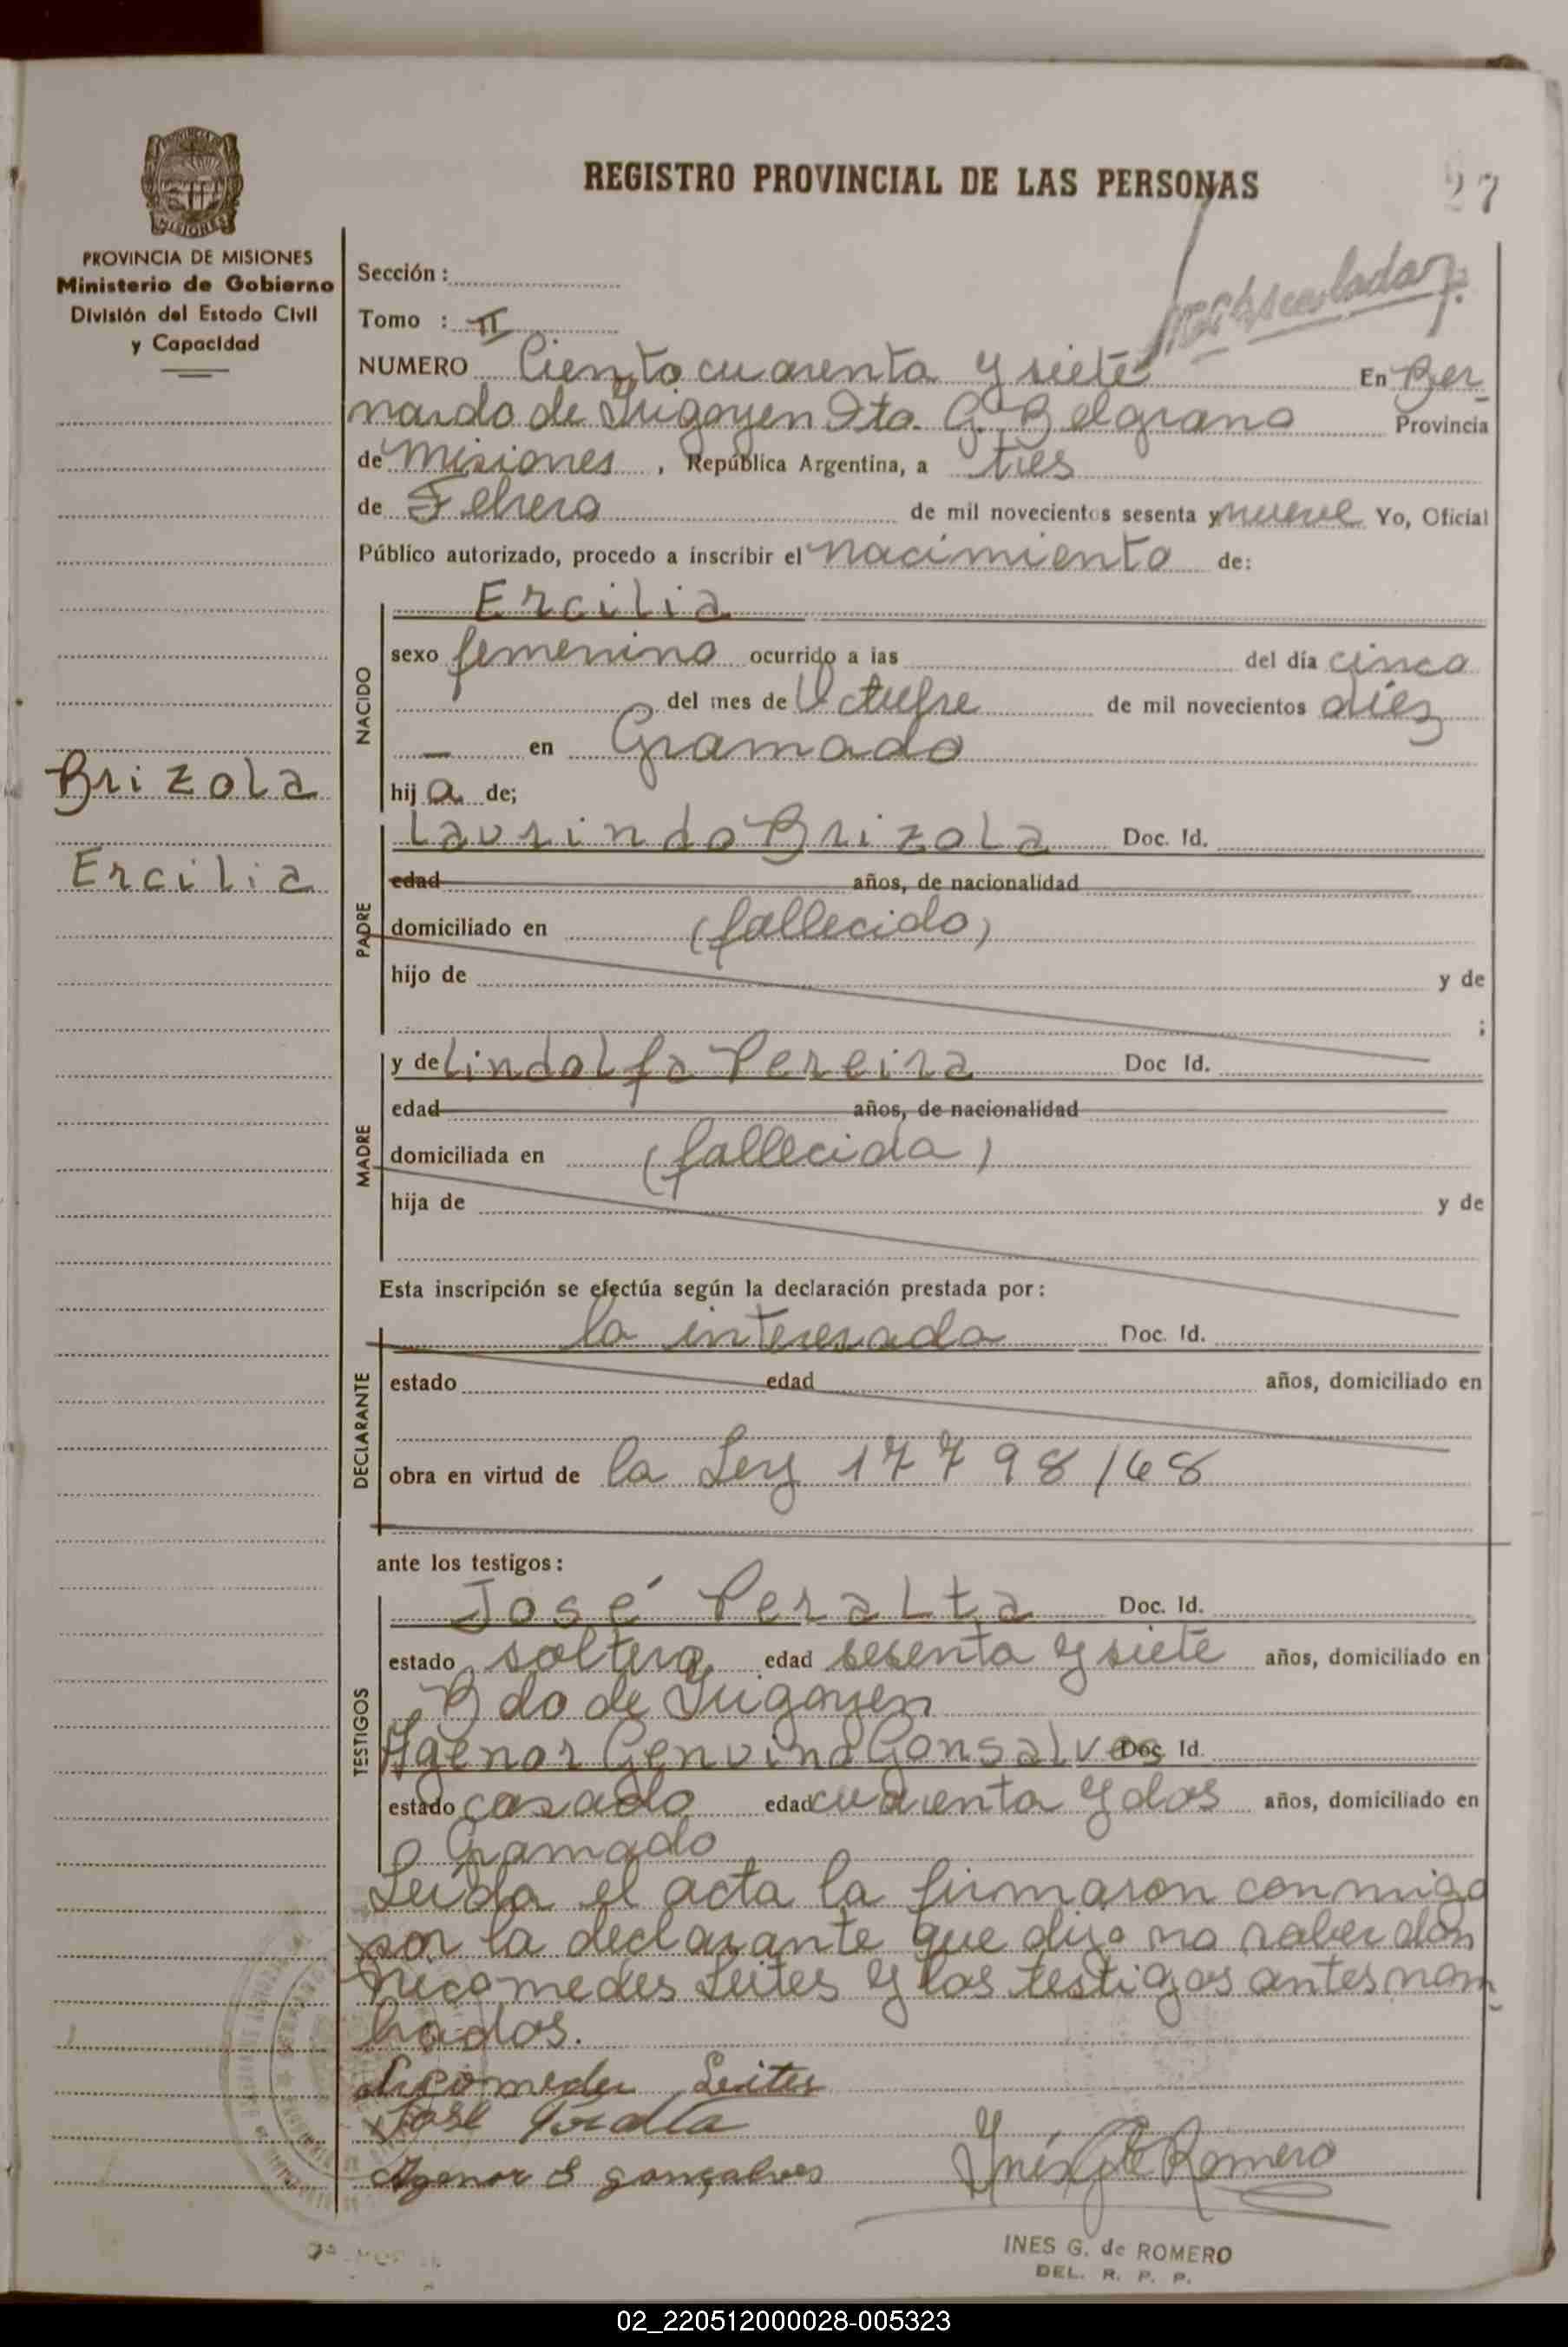 REGISTRO PROVINCIAL DE LAS PERSONAS
27
MISIONES
PROVINCIA DE MISIONES
Ministerio de Gobierno
División del Estado Civil
y Capacidad
Brizola
Ercilia
Sección :
Tomo : II
NUMERO Ciento cuarenta y siete En Ber-
nardo de Irigoyen Dto. G. Belgrano Provincia
de Misiones , República Argentina, a tres
de Febrero de mil novecientos sesenta y nueve Yo, Oficial
Público autorizado, procedo a inscribir el nacimiento de:
NACIDO
Ercilia
sexo femenino ocurrido a las del día cinco
del mes de Octubre de mil novecientos diez
— en Gramado
hij a de;
PADRE
Laurindo Brizola Doc. Id.
edad años, de nacionalidad
domiciliado en (fallecido)
hijo de y de
;
MADRE
y de Lindolfa Pereira Doc Id.
edad años, de nacionalidad
domiciliada en (fallecida)
hija de y de
Esta inscripción se efectúa según la declaración prestada por :
DECLARANTE
la interesada Doc. Id.
estado edad años, domiciliado en
obra en virtud de la Ley 17798/68
ante los testigos :
TESTIGOS
José Peralta Doc. Id.
estado soltero edad sesenta y siete años, domiciliado en
Bdo de Irigoyen
Agenor Genuino Gonsalves Doc Id.
estado casado edad cuarenta y dos años, domiciliado en
Gramado
Leida el acta la firmaron conmigo
por la declarante que dijo no saber don
Nicomedes Leites y los testigos antes nom-
brados.
Nicomedes Leites
José Peralta
Agenor G gonçalves
Inés G de Romero
INES G. de ROMERO
DEL. R. P. P.
02_220512000028-005323